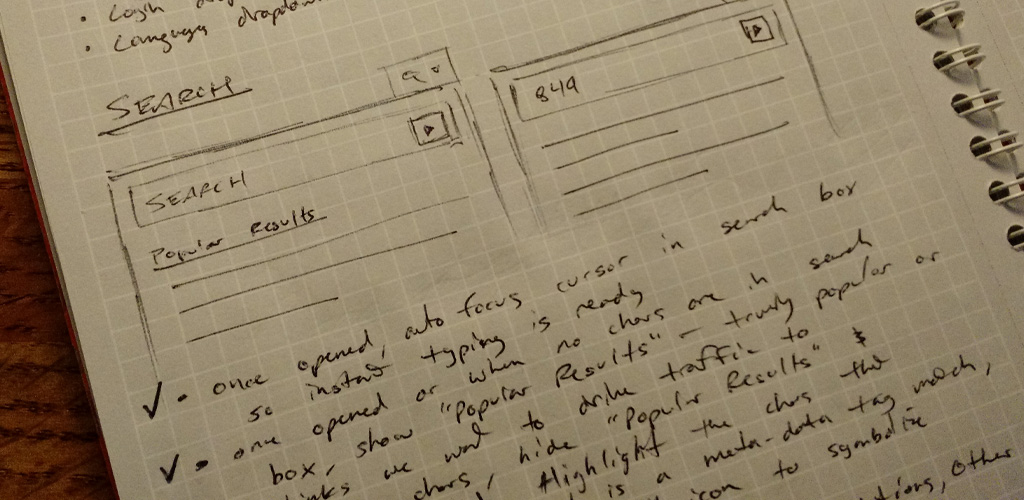 • Login
• Language dropdown
SEARCH
SEARCH
Popular Results
849
• once opened, auto focus cursor in search box
so instant typing is ready
• once opened or when no chars are in search
box, show "popular Results" – truly popular or
links we want to drive traffic to
chars, hide "popular Results" &
Highlight the chars that
is a meta-data tag match,
icon to symbolize
other